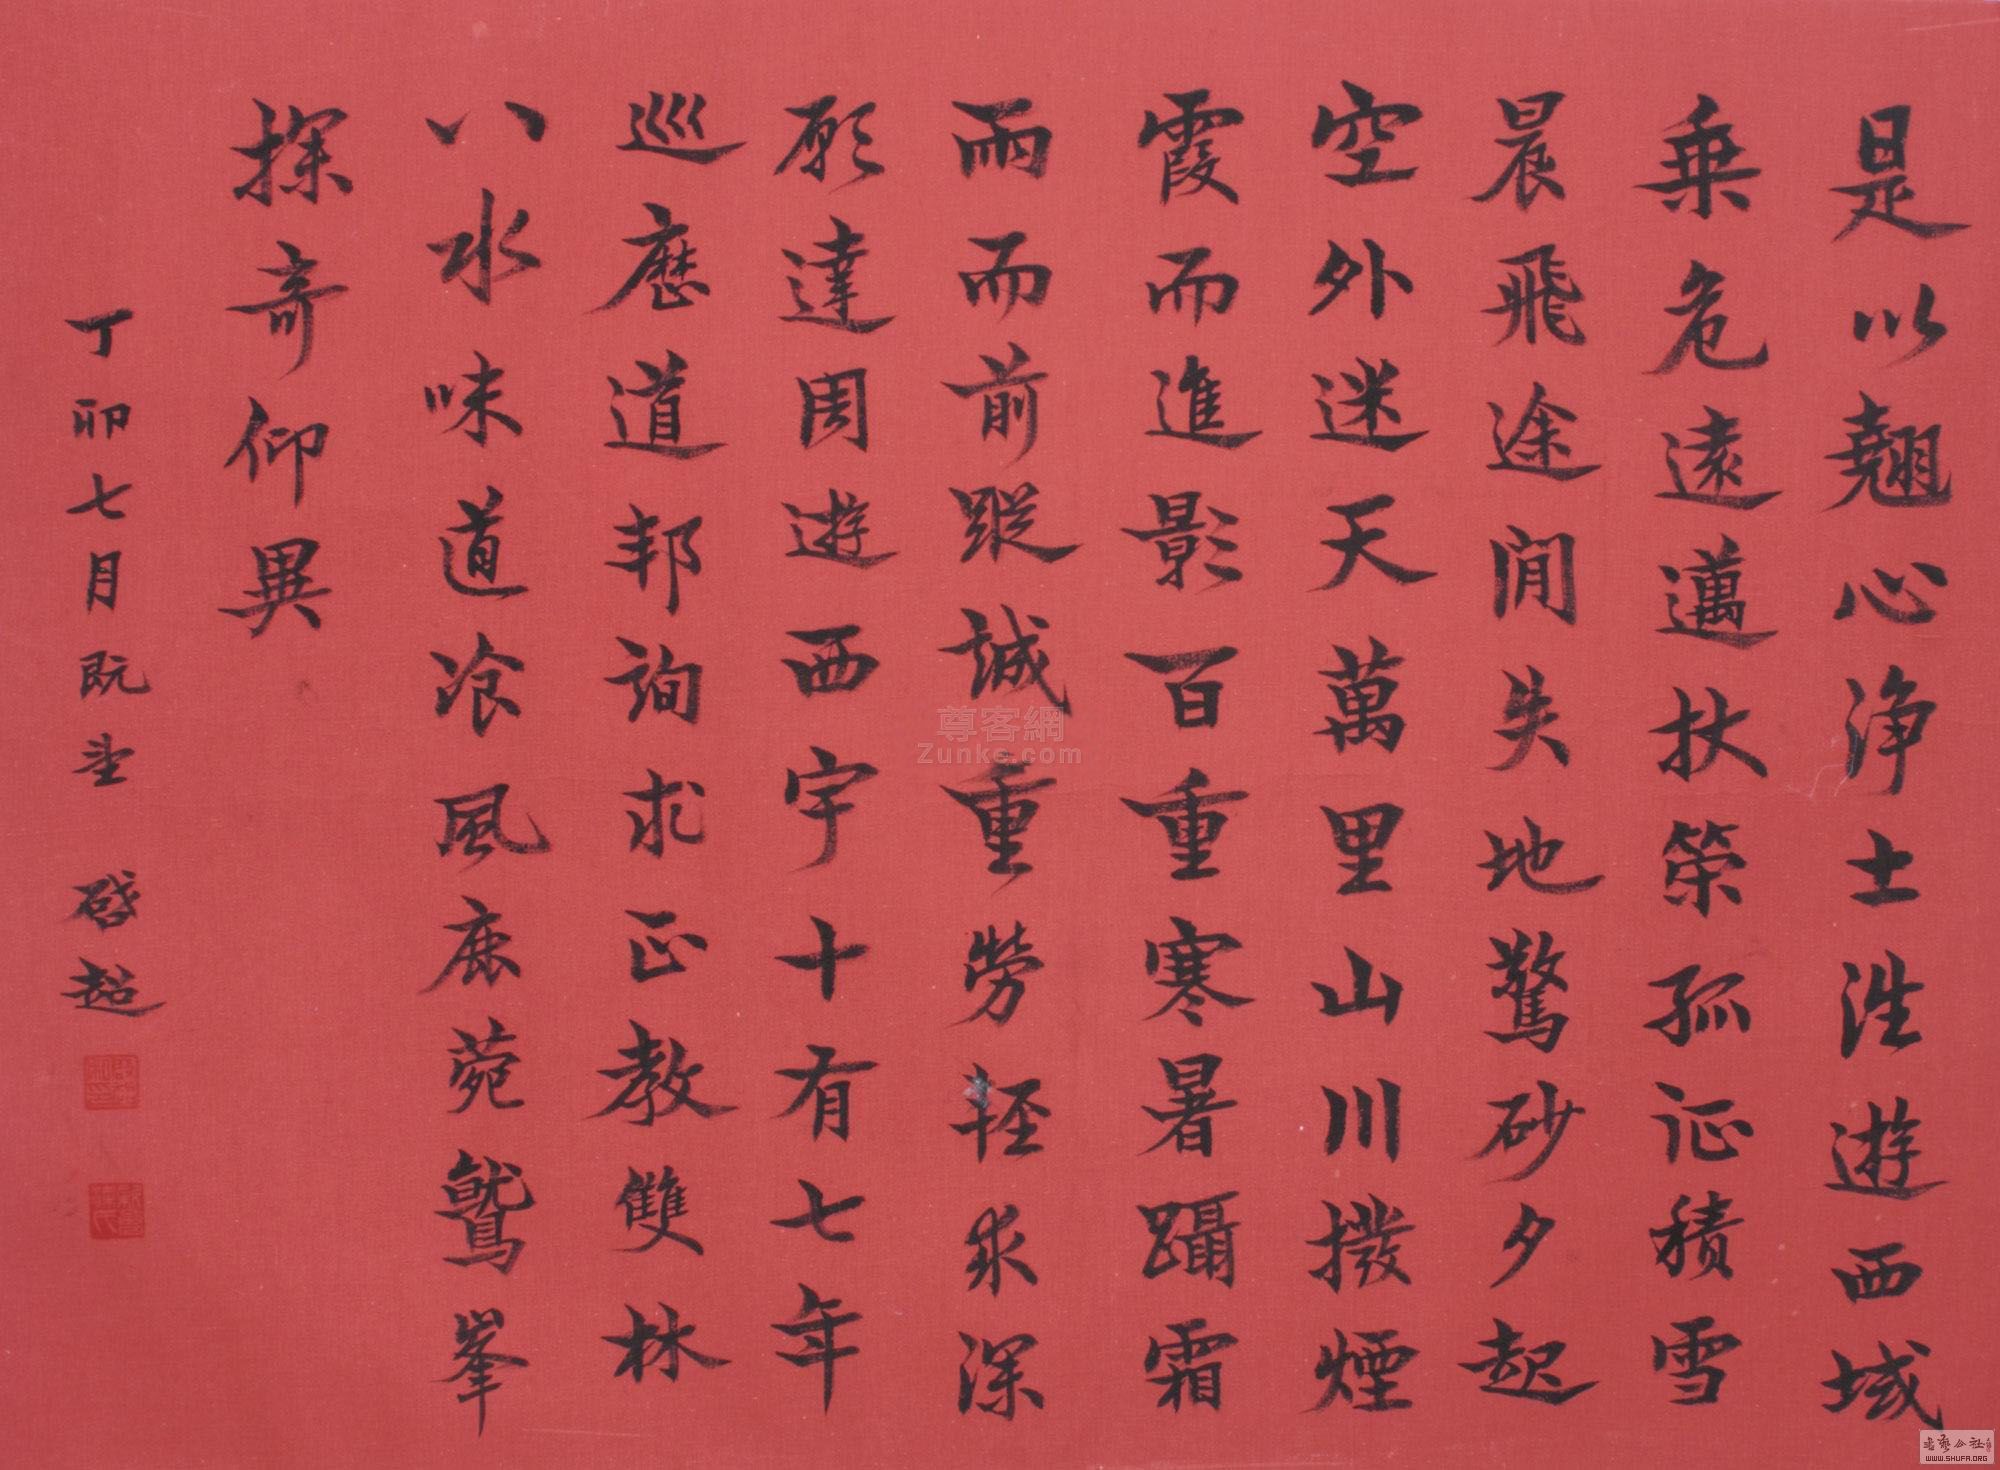 是以翹心浄土往遊西域
乗危遠邁杖策孤征積雪
晨飛途閒失地驚砂夕起
空外迷天萬里山川撥煙
霞而進影百重寒暑躡霜
雨而前蹤誠重勞輕求深
願達周遊西宇十有七年
巡歷道邦詢求正教雙林
八水味道飡風鹿菀鷲峯
探奇仰異
丁卯七月既望 啓超
尊客網
Zunke.com
WWW.SHUFA.ORG